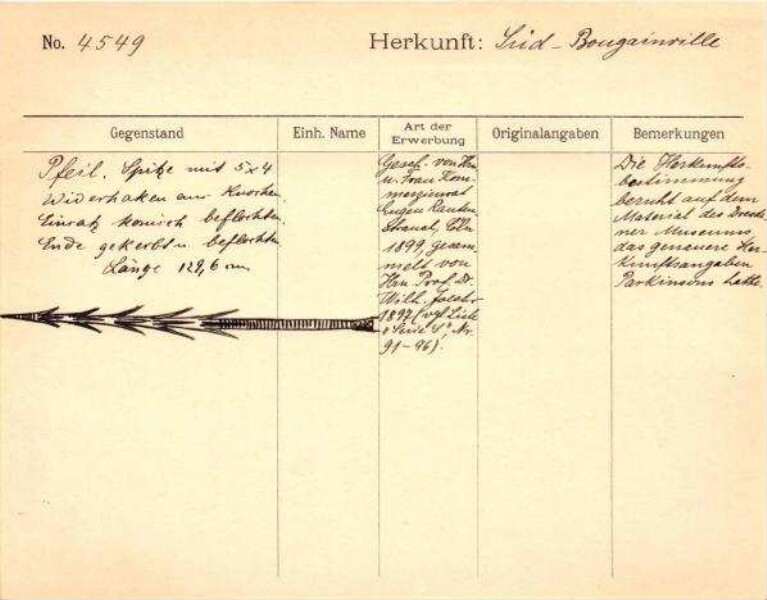 No. 4549
Herkunft: Süd-Bougainville
Gegenstand
Einh. Name
Art der Erwerbung
Originalangaben
Bemerkungen
Pfeil. Spitze mit 5x4
Widerhaken aus Knochen.
Einsatz konisch beflochten.
Ende gekerbt u. beflochten.
Länge 129,6 cm
Gesch. von Hrn
u. Frau Kom-
merzienrat
Eugen Rauten-
strauch, Cöln
1899, gesam-
melt von
Hrn Prof. Dr.
Wilh. Joest
1897 (vgl. Liste
"Serie 4", Nr.
91-96).
Die Herkunfts-
bestimmung
beruht auf dem
Material des Dresde-
ner Museums,
das genauere Her-
kunftsangaben
Parkinsons hatte.